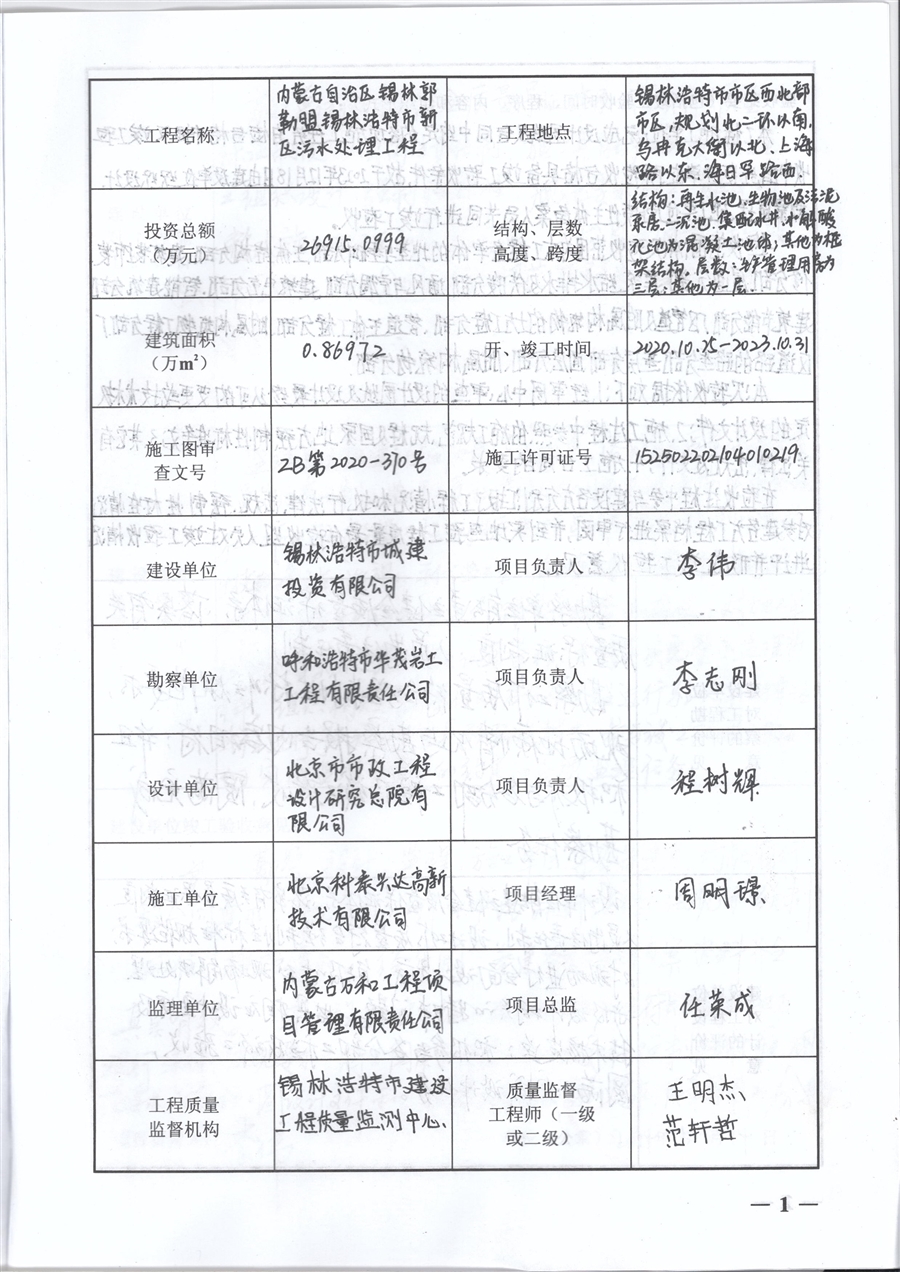 工程名称
内蒙古自治区锡林郭
勒盟锡林浩特市新
区污水处理工程
工程地点
锡林浩特市市区西北部
市区,规划北二环以南,
乌冉克大街以北、上海
路以东、海日罕路西.
投资总额
(万元)
26915.0999
结构、层数
高度、跨度
结构:再生水池、生物池及污泥
泵房、二沉池、集配水井、水解酸
化池为混凝土池体;其他为框
架结构.层数:生产管理用房为
三层;其他为一层.
建筑面积
(万m²)
0.86972
开、竣工时间
2020.10.25-2023.10.31
施工图审
查文号
ZB第2020-370号
施工许可证号
152502202104010219
建设单位
锡林浩特市城建
投资有限公司
项目负责人
李伟
勘察单位
呼和浩特市华茂岩土
工程有限责任公司
项目负责人
李志刚
设计单位
北京市市政工程
设计研究总院有
限公司
项目负责人
程树辉
施工单位
北京科泰兴达高新
技术有限公司
项目经理
周明璟
监理单位
内蒙古万和工程项
目管理有限责任公司
项目总监
任荣成
工程质量
监督机构
锡林浩特市建设
工程质量监测中心、
质量监督
工程师(一级
或二级)
王明杰、
范轩哲
— 1 —